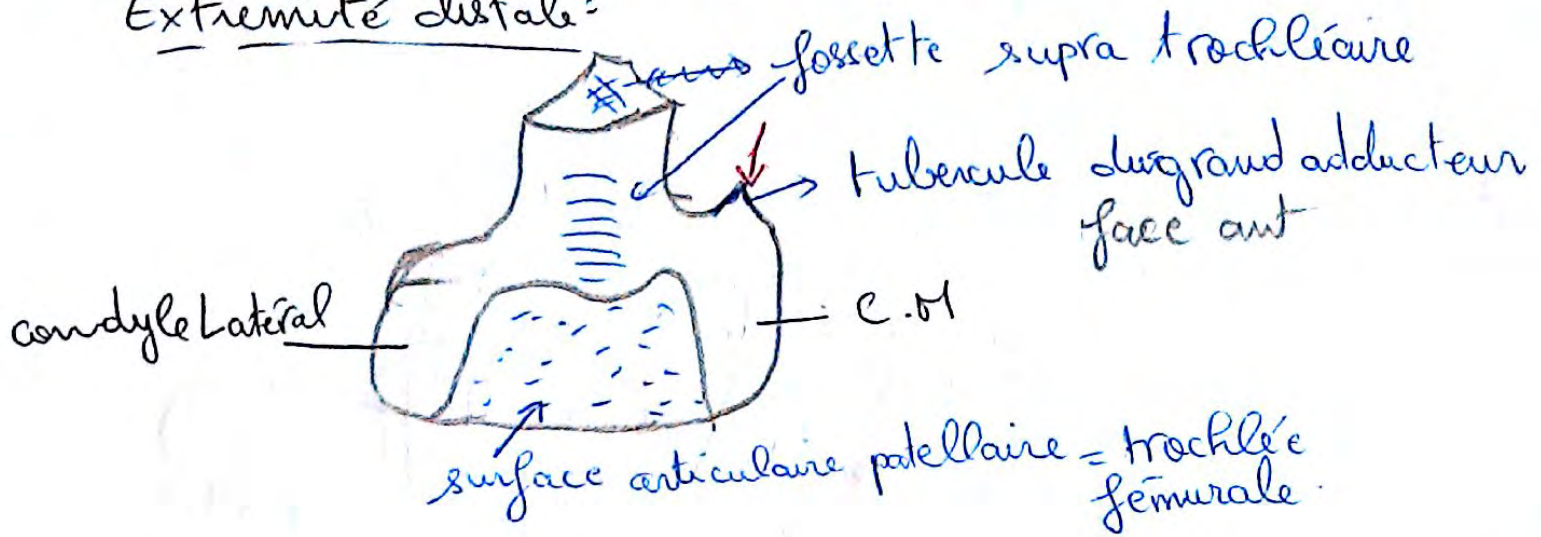 Extremité distale:
fossette supra trochléaire
tubercule du grand adducteur
face ant
condyle Latéral
C.M
surface articulaire patellaire = trochlée
fémurale.